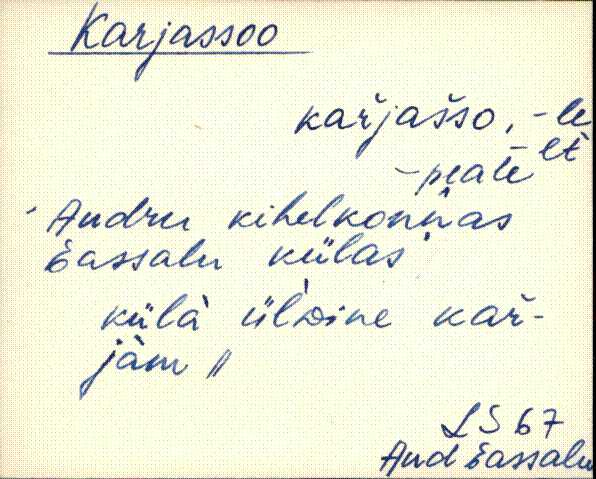 Karjassoo
kařjašso, -le
-lt
-peale
Audru kihelkonnas
Eassalu külas
külà ülDine kař-
jàm //
LS 67
Aud Eassalu